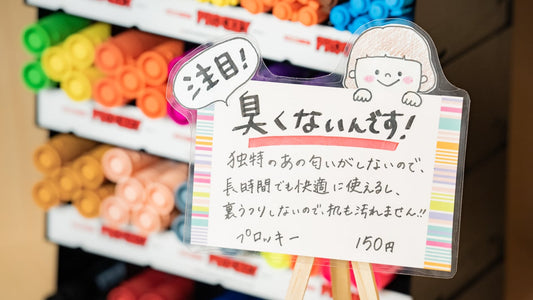 注目!
臭くないんです!
独特のあの匂いがしないので、
長時間でも快適に使えるし、
裏うつりしないので、机も汚れません!!
プロッキー 150円